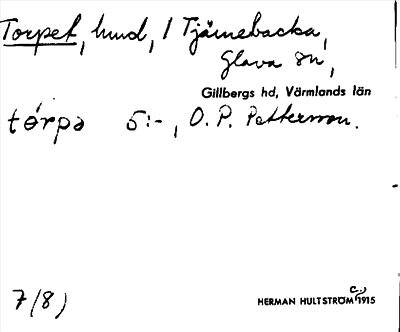 Torpet, hmd, / Tjärnebacka,
Glava sn,
Gillbergs hd, Värmlands län
tórpə 5:-, O. P. Pettersson.
7(8)
HERMAN HULTSTRÖM C:a 1915